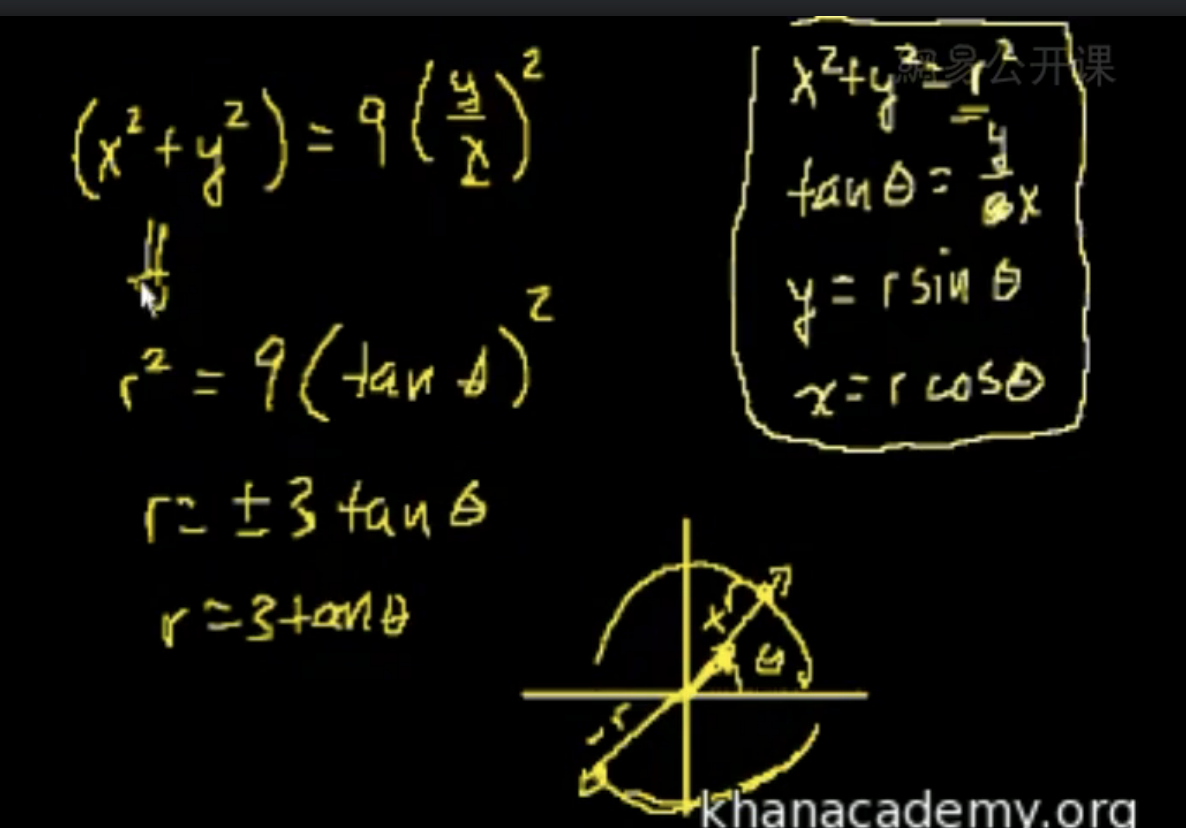 (x² + y²) = 9 (y/x)²
r² = 9 (tan θ)²
r = ± 3 tan θ
r = 3 tan θ
x² + y² = r²
網易公开课
tan θ = y/x
y = r sin θ
x = r cos θ
θ
-r
khanacademy.org